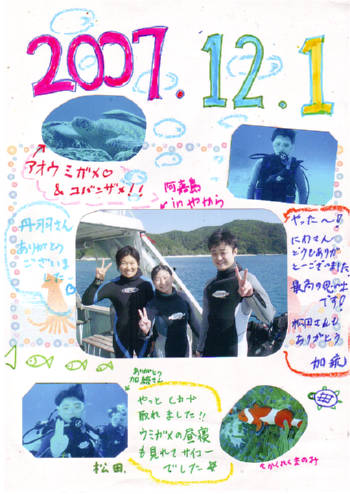 2007.12.1
アオウミガメ♡
& コバンザメ!!
阿嘉島
in やから
丹羽さん
ありがとの
ございま
した♡
やった〜!
にわさん
どうもありが
とーございました
最高の思い出
です!
松田さんも
ありがとう
ありがとう
やっとCカード
取れました!!
ウミガメの昼寝
も見れてサイコー
でした☆
松田.
かくれくまのみ